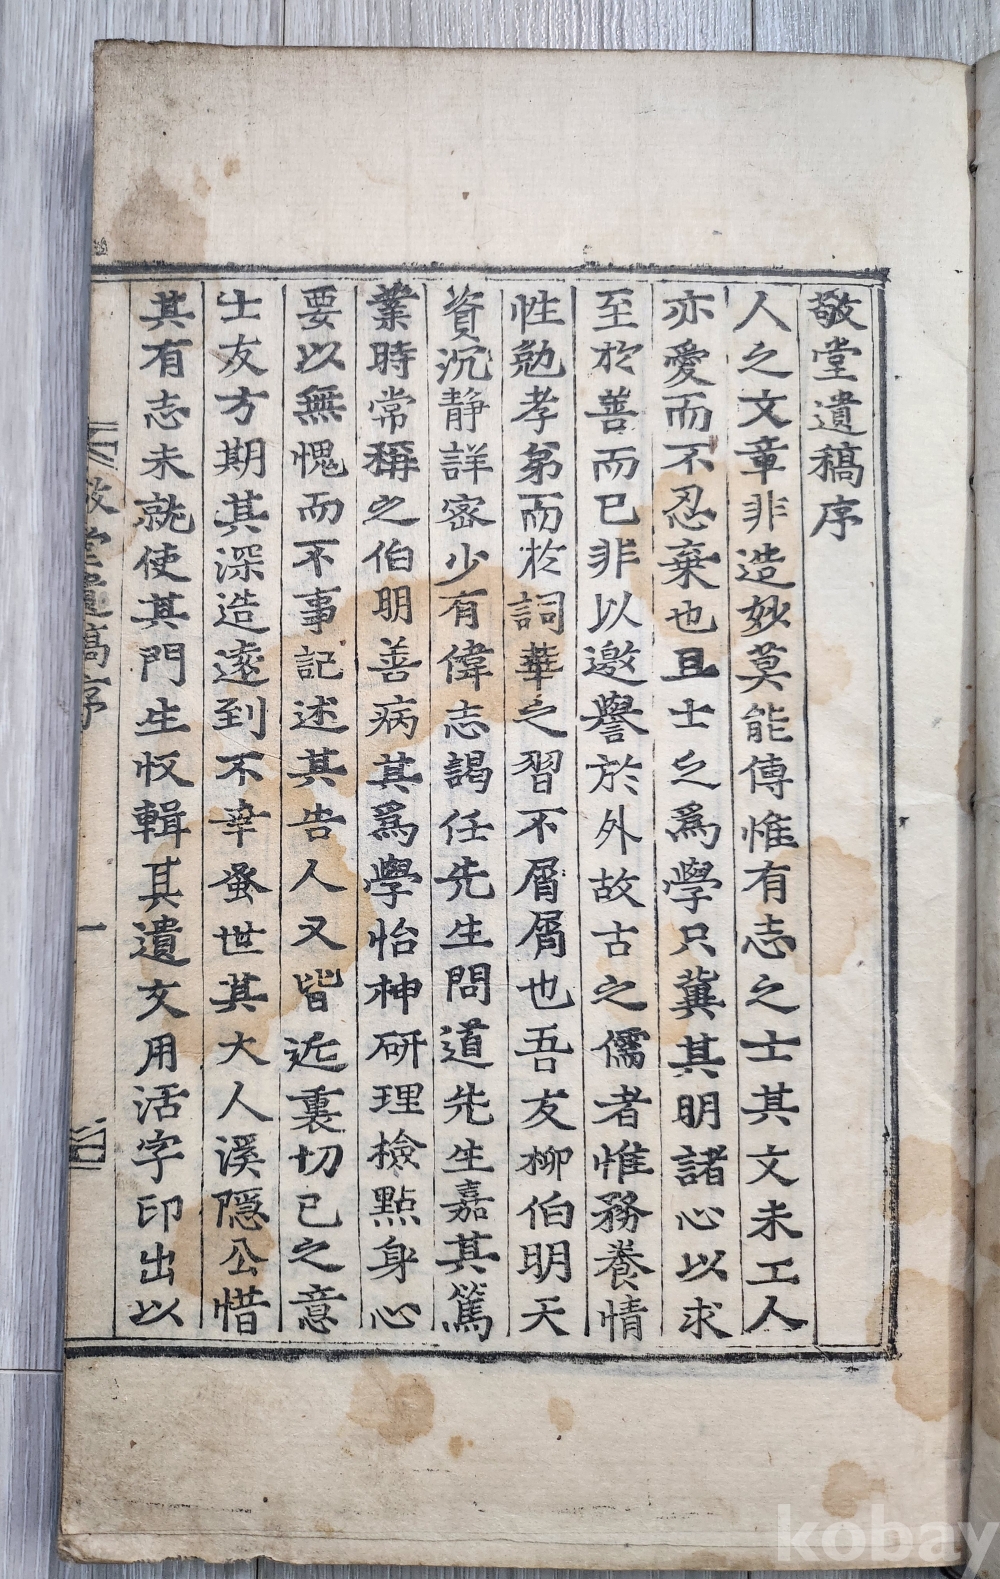 敬堂遺稿序
人之文章非造妙莫能傳惟有志之士其文未工人
亦愛而不忍棄也且士之爲學只冀其明諸心以求
至於善而已非以邀譽於外故古之儒者惟務養情
性勉孝弟而於詞華之習不屑屑也吾友柳伯明天
資沉静詳密少有偉志謁任先生問道先生嘉其篤
業時常稱之伯明善病其爲學怡神研理檢點身心
要以無愧而不事記述其告人又皆近裏切己之意
士友方期其深造遠到不幸蚤世其大人溪隱公惜
其有志未就使其門生收輯其遺文用活字印出以
敬堂遺稿序
一
kobay